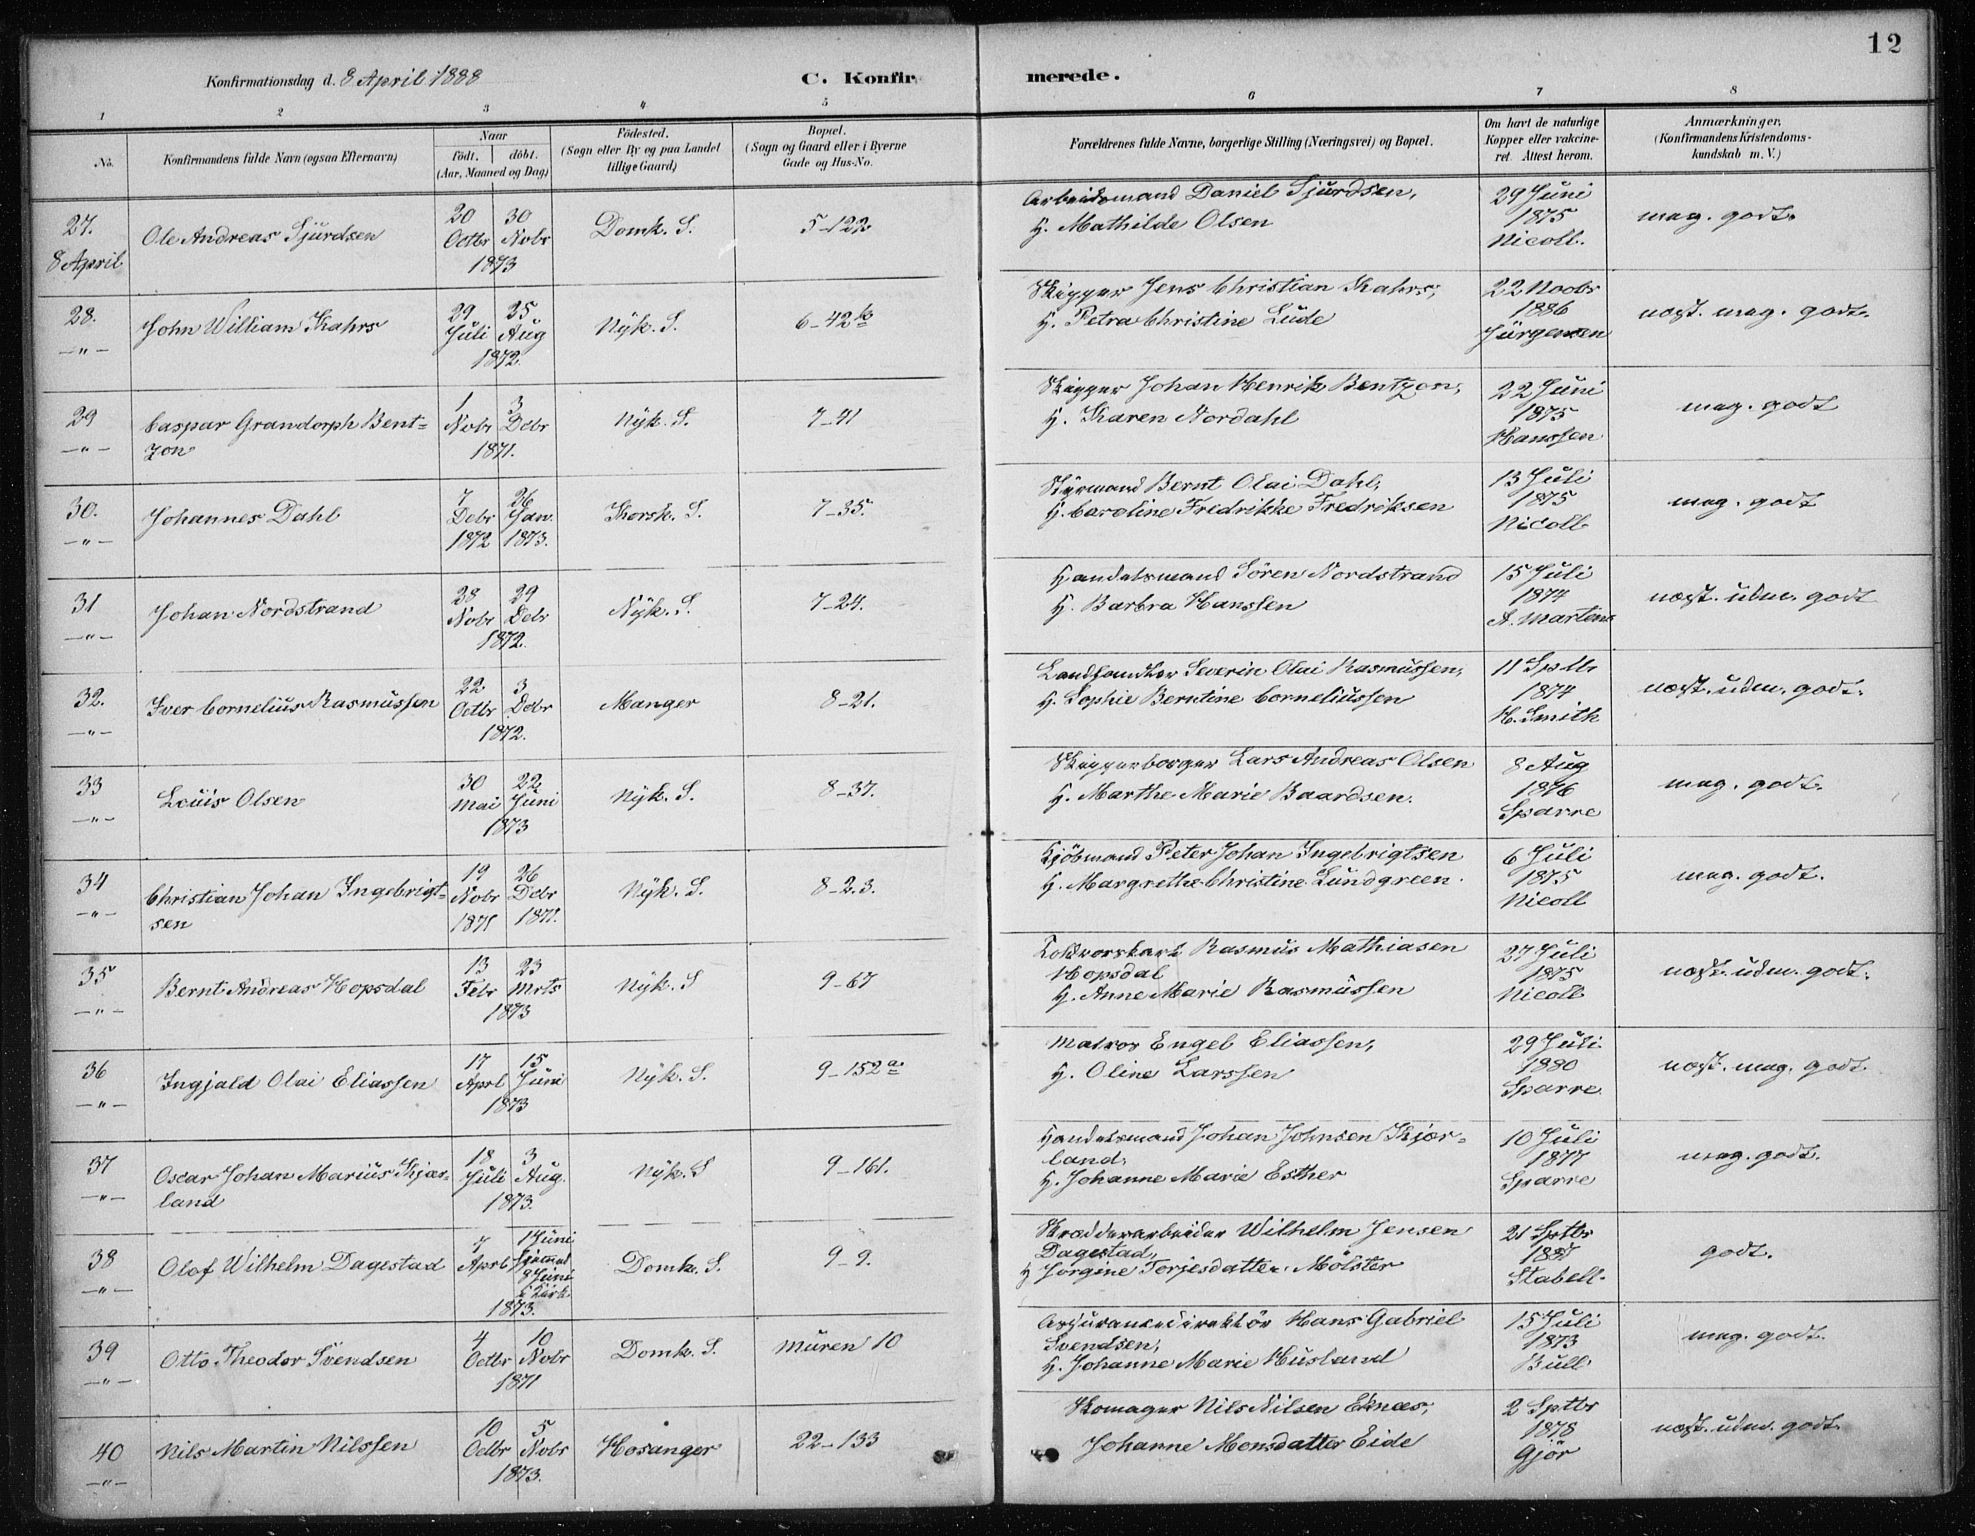 12
Konfirmationsdag d. 8 April 1888
C. Konfirmerede.
1 2 3 4 5 6 7 8
No. Konfirmandens fulde Navn (ogsaa Efternavn)
Naar födt. döbt. (Aar, Maaned og Dag)
Födested. (Sogn eller By og paa Landet tillige Gaard)
Bopæl. (Sogn og Gaard eller i Byerne Gade og Hus-No.
Forældrenes fulde Navne, borgerlige Stilling (Næringsvei) og Bopæl.
Om havt de naturlige Kopper eller vakcineret. Attest herom.
Anmærkninger, (Konfirmandens Kristendomskundskab m. V.)
27. 8 April Ole Andreas Sjurdsen 20 Octbr 30 Nobr 1873 Domk. S. 5-122 Arbeidsmand Daniel Sjurdsen, H. Mathilde Olsen 29 Juni 1875 Nicoll. mag. godt.
28. -"- John William Kahrs 29 Juli 25 Aug 1872. Nyk. S. 6-42 Skipper Jens Christian Kahrs, H. Petra Christine Lude 22 Novbr 1886 Jürgensen næst. mag. godt.
29 -"- Caspar Grandorph Bentzon 1 Nobr 3 Dcbr 1871. Nyk. S. 7-41 Skipper Johan Henrik Bentzon, H. Karen Nordahl 22 Juni 1875 Hanssen mag. godt
30. -"- Johannes Dahl 7 Debr 1872 26 Jan. 1873. Korsk. S. 7-35. Styrmand Bernt Olai Dahl, H. Caroline Fredrikke Fredriksen 13 Juli 1875 Nicoll mag. godt
31 -"- Johan Nordstrand 28 Nobr 29 Debr 1872. Nyk. S. 7-24. Handelsmand Sören Nordstrand H. Barbra Hanssen 15 Juli 1874 A. Martens næst. udm. godt
32. -"- Iver Cornelius Rasmussen 22 Octbr 3 Dcbr 1872. Manger 8-21. Landhandler Severin Olai Rasmussen, H. Sophie Berntine Corneliussen 11 Sptbr 1874 H. Smith næst. udm. godt.
33 -"- Louis Olsen 30 Mai 22 Juni 1873 Nyk. S. 8-37. Skipperborger Lars Andreas Olsen H. Marthe Marie Baardsen. 8 Aug 1876 Sparre mag. godt.
34 -"- Christian Johan Ingebrigtsen 19 Nobr 1871 26 Dcbr 1871. Nyk. S. 8-23. Kjöbmand Peter Johan Ingebrigtsen H. Margrethe Christine Lundgreen. 6 Juli 1875 Nicoll mag. godt.
35 -"- Bernt Andreas Hopsdal 13 Febr 23 Mrts 1873 Nyk. S 9-67 Rasmus Mathiasen Hopsdal H. Anne Marie Rasmussen 27 Juli 1875 Nicoll næst. udm. godt.
36 -"- Ingjald Olai Eliassen 17 Aprl 15 Juni 1873 Nyk. S. 9-152 a Matros Engel Eliassen, H. Oline Larssen 29 Juli 1880 Sparre næst. mag. godt.
37 -"- Oscar Johan Marius Kjærland 18 Juli 3 Aug. 1873. Nyk. S 9-161. Handelsmand Johan Johnsen Kjærland, H. Johanne Marie Esther 10 Juli 1877 Sparre mag. godt.
38 -"- Olaf Wilhelm Dagestad 7 Aprl 1 Juni hjemmed 8 Juni i Kirk. 1873. Domk. S. 9-9. Skrædderarbeider Wilhelm Jensen Dagestad, H Jorgine Torjesdatter Mölster 21 Sptbr Stabell. godt.
39 -"- Otto Theodor Svendsen 4 Octbr 10 Nobr 1871 Domk. S. Muren 10 Assurancedirektör Hans Gabriel Svendsen, H. Johanne Marie Husland 15 Juli 1873 Bull mag. godt.
40 -"- Nils Martin Nilssen 10 Octbr 5 Nobr 1873. Hosanger 22-133 Skomager Nils Nilsen Eknæs, Johanne Monsdatter Eide 2 Sptbr 1878 Gjör næst. udm. godt.